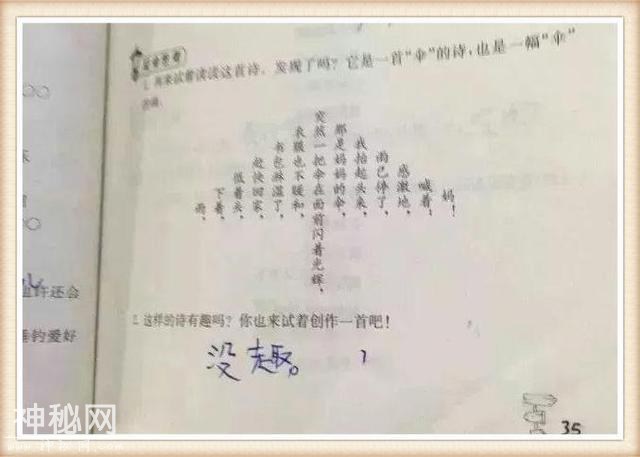 1. 再来试着读读这首诗，发现了吗？它是一首“伞”的诗，也是一幅“伞”
雨，
下着，
低着头，
赶快回家，
书包淋湿了，
衣服也不暖和，
突然一把伞在面前闪着光辉，
那是妈妈的伞，
我抬起头来，
雨已停了，
感激地，
喊着：
妈！
2. 这样的诗有趣吗？你也来试着创作一首吧！
没趣。
35
许还会
钓爱好
神秘网